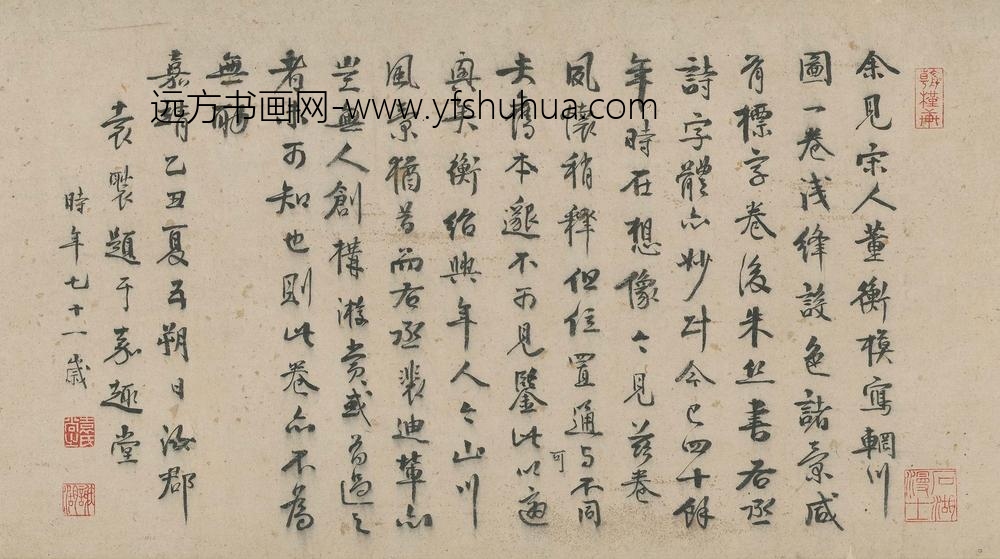 余見宋人董衡模寫輞川
圖一卷浅絳設色諸景咸
有標字卷後朱丝書右丞
詩字體亦妙計今已四十餘
年時在想像今見茲卷
風懷稍釋但位置通与不同
可
夫傳本邈不可見鑒此以適
興矣衡紹興年人今山川
風景猶昔而右丞裴迪輩亦
豈無人創構游賞或有過之
者未可知也則此卷亦不為
無助
嘉靖乙丑夏五朔日汝郡
袁褧題于嘉趣堂
時年七十一歲
石湖漫士
袁氏尚之
謝湖
远方书画网-www.yfshuhua.com